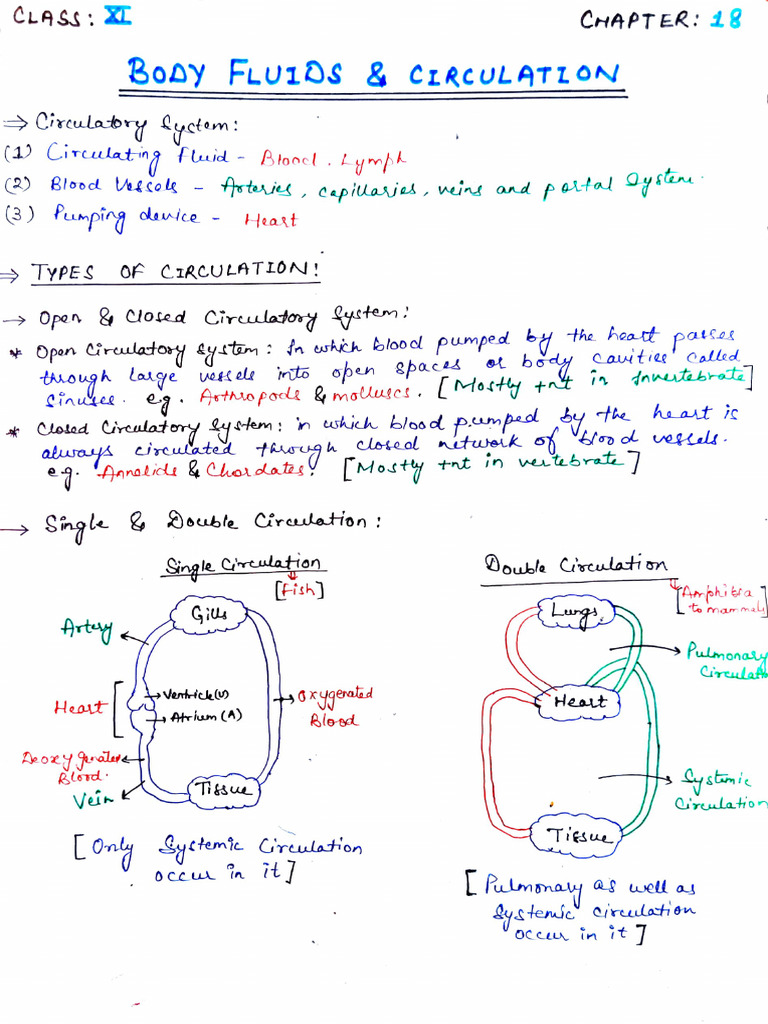 CLASS: XI
CHAPTER: 18
BODY FLUIDS & CIRCULATION
⇒ Circulatory System:
(1) Circulating Fluid - Blood. Lymph
(2) Blood Vessels - Arteries, capillaries, veins and portal System.
(3) Pumping device - Heart
⇒ TYPES OF CIRCULATION:
→ Open & Closed Circulatory System:
* Open Circulatory System: In which blood pumped by the heart passes
through large vessels into open spaces or body cavities called
sinuses. e.g. Arthropods & molluscs. [Mostly +nt in Invertebrate]
* Closed Circulatory System: in which blood pumped by the heart is
always circulated through closed network of blood vessels.
e.g. Annelids & Chordates. [Mostly +nt in vertebrate]
→ Single & Double Circulation:
Single Circulation
[Fish]
Gills
Artery
Heart
Ventricle(V)
Atrium (A)
Oxygenated
Blood
Deoxygenated
Blood.
Vein
Tissue
[Only Systemic Circulation
occur in it]
Double Circulation
[Amphibia
to mammals]
Lungs
Pulmonary
Circulation
Heart
Systemic
Circulation
Tissue
[Pulmonary as well as
systemic circulation
occur in it]